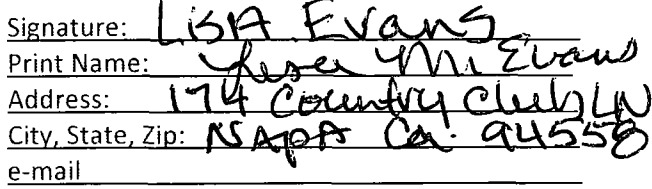 Signature: LISA Evans
Print Name: Lisa M. Evans
Address: 174 Country Club LN
City, State, Zip: NAPA Ca. 94558
e-mail